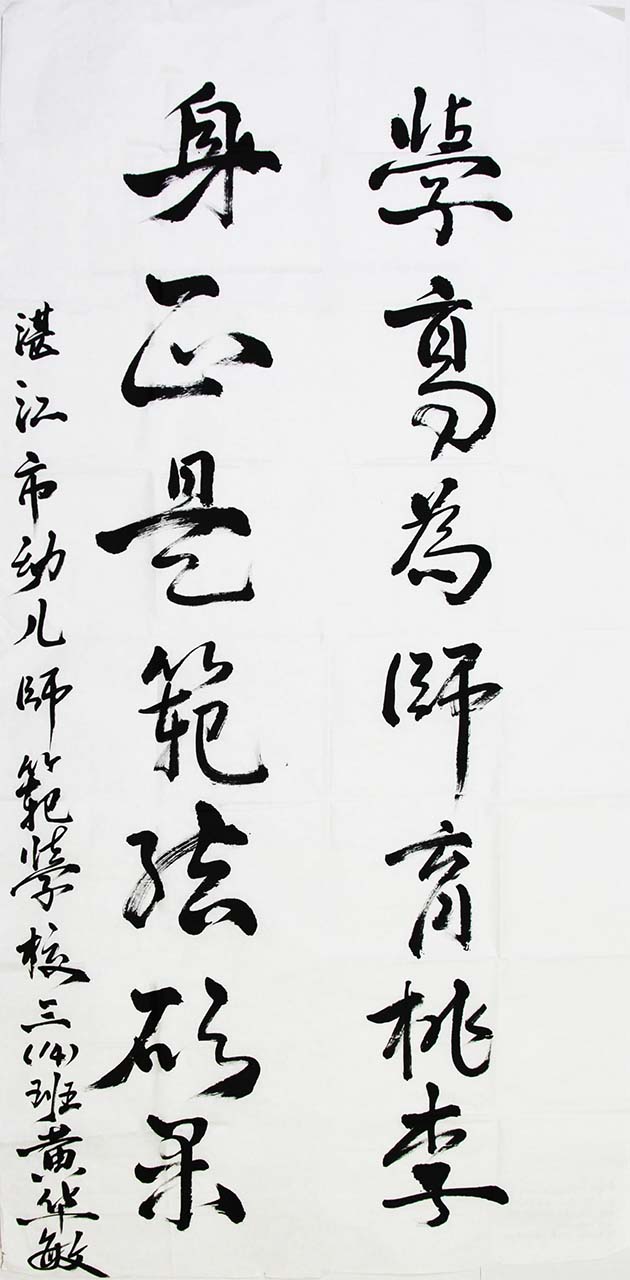 學高為師育桃李
身正是範結碩果
湛江市幼儿師範學校三(14)班黄华敏